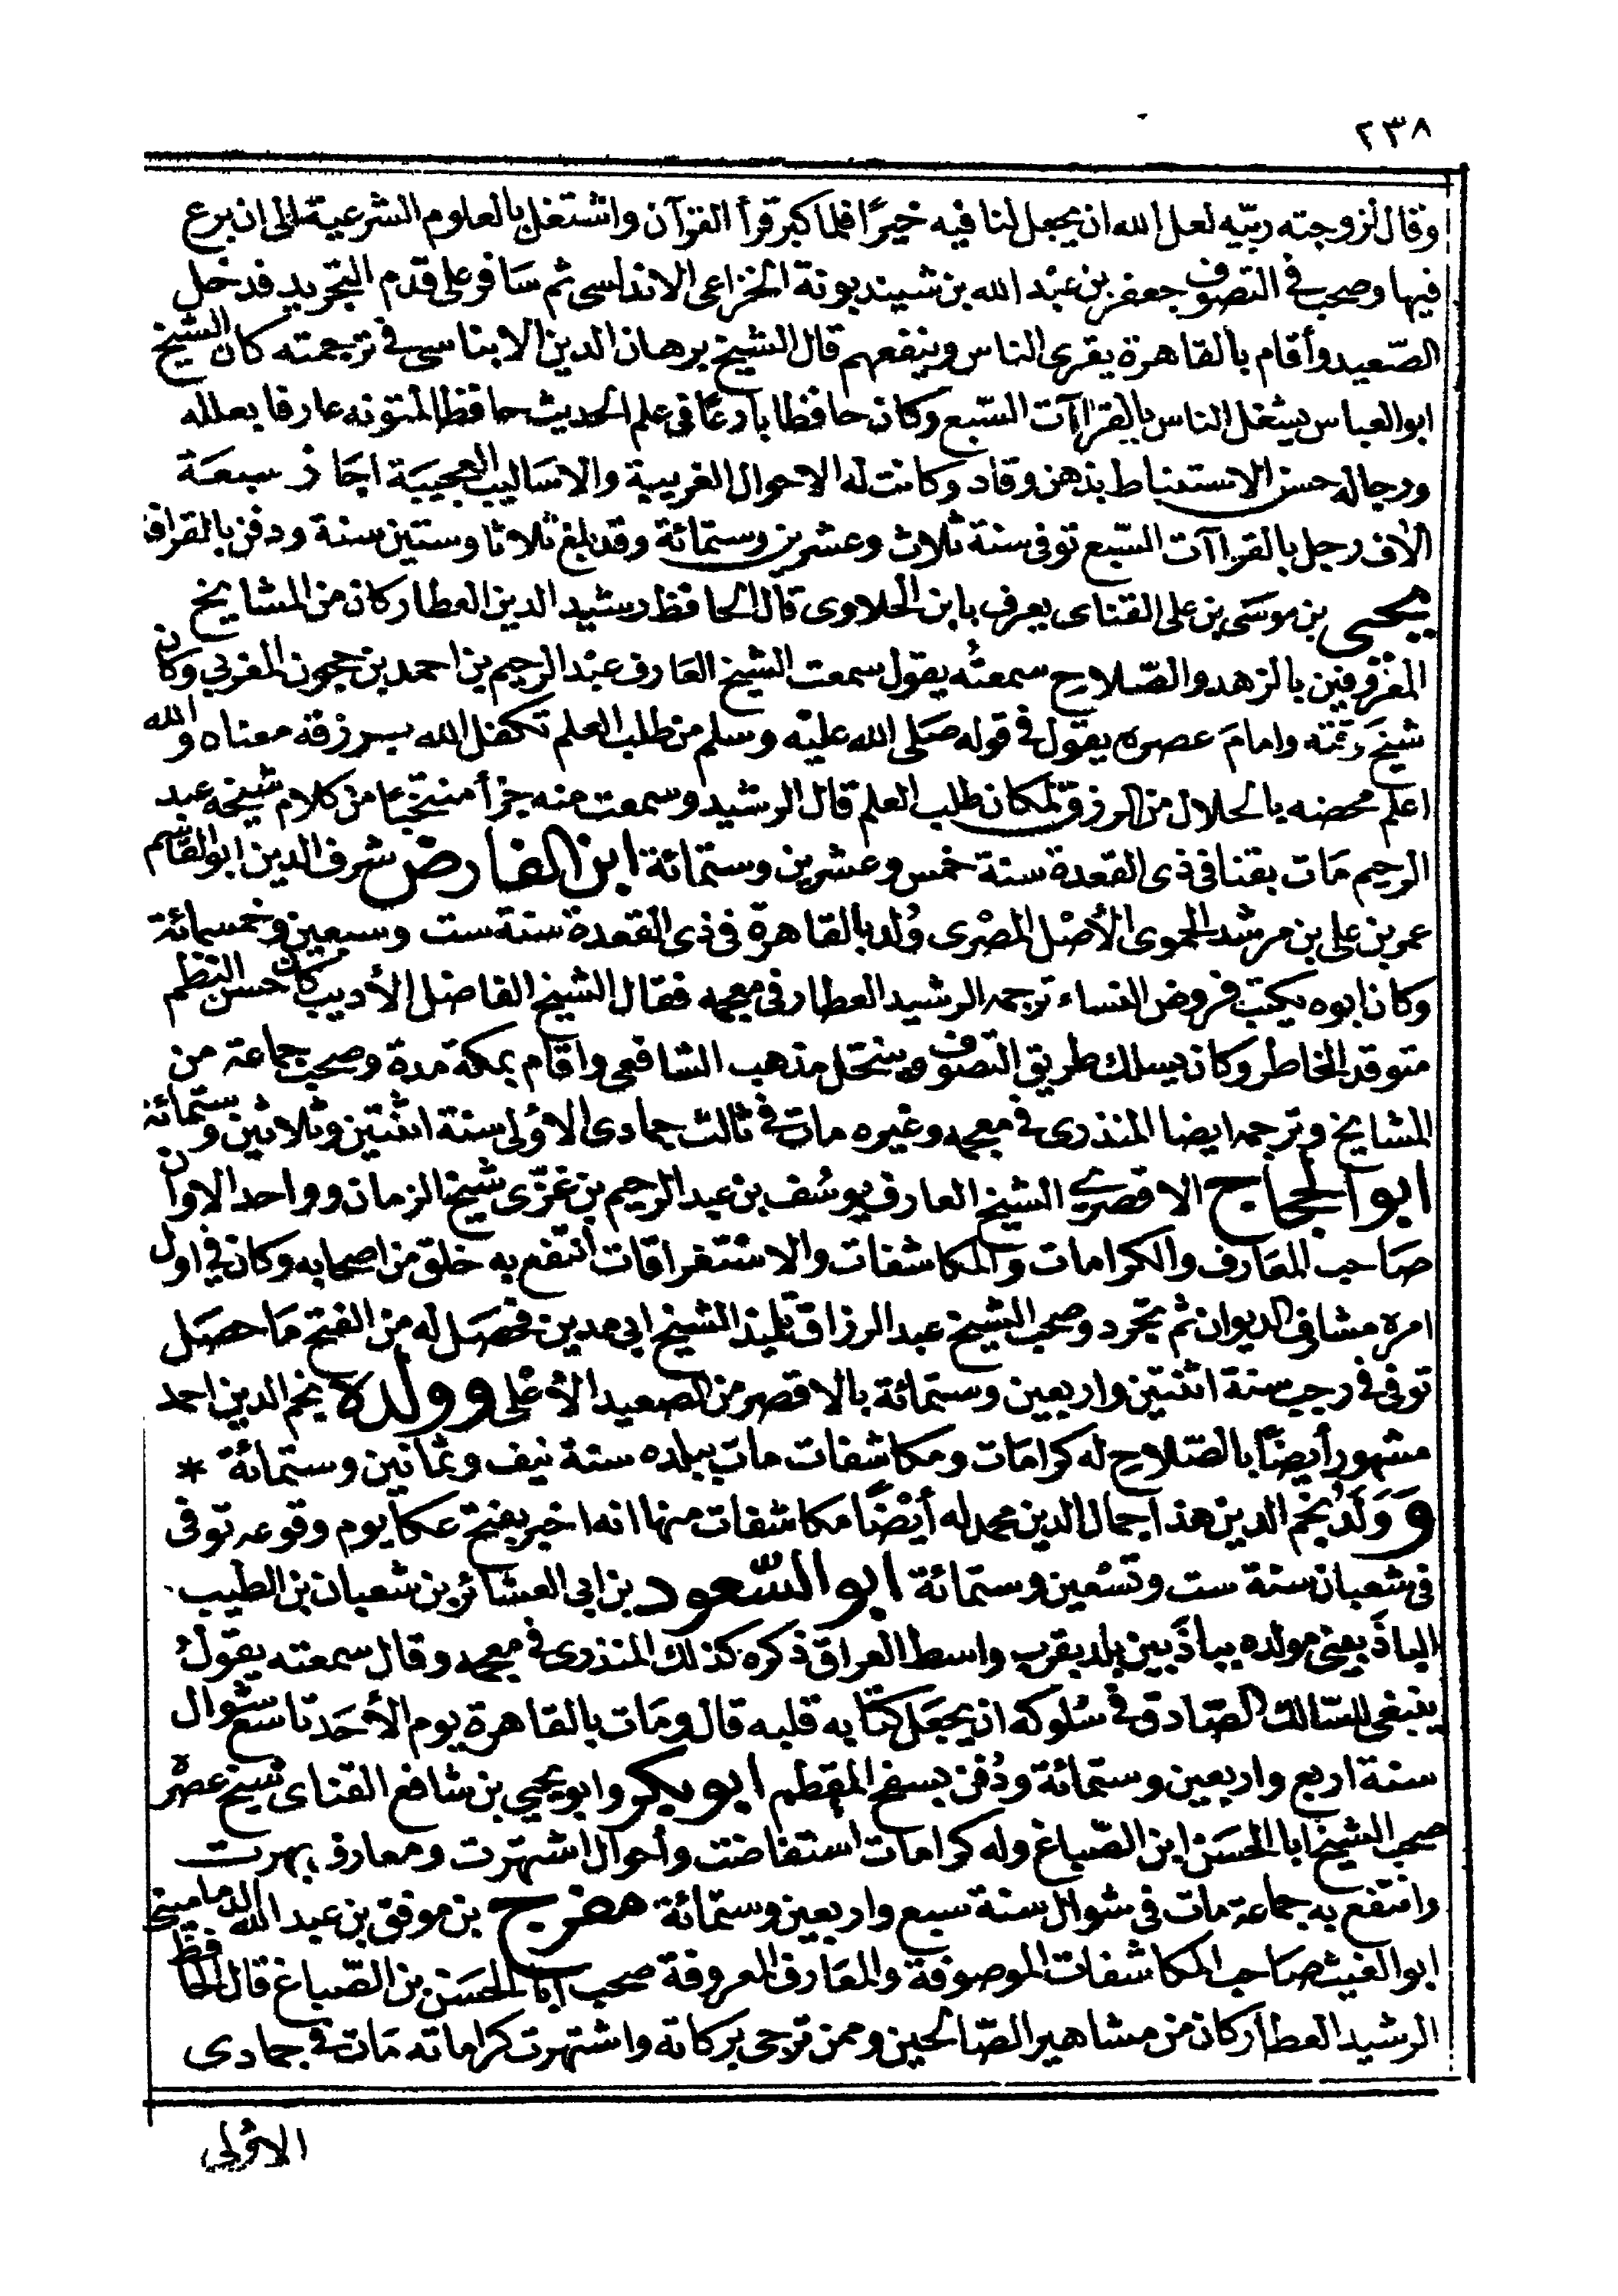 ٢٣٨
وقال لزوجته ربّيه لعل الله ان يجعل لنا فيه خيرًا فلما كبر قرأ القرآن واشتغل بالعلوم الشرعية الى ان برع
فيها وصحب فى التصوف جعفر بن عبْد الله بن شيند بونة الخزاعى الاندلسى ثم سَافر على قدم التجريد فدخل
الصّعيد وأقام بالقاهرة يقرى الناس وينفعهم قال الشيخ برهان الدين الابناسى فى ترجمته كان الشيخ
ابو العباس يشغل الناس بالقراآت السّبع وكان حافظا بارعًا فى علم الحديث حافظا لمتونه عارفا بعلله
ورجاله حسن الاستنباط بذهن وقاد وكانت له الاحوال الغريبة والاسَاليب العجيبَة اجَاز سبعَة
آلاف رجل بالقراآت السّبع توفى سنة ثلاث وعشرين وستمائة وقد بلغ ثلاثا وستين سنة ودفن بالقرافة
يحيى بن موسَى بن على القناى يعرف بابن الحلاوى قال الحافظ رشيد الدين العطار كان من المشايخ
المعْروفين بالزهد والصّلاح سمعتُه يقول سمعت الشيخ العَارف عبْد الرحيم بن احمد بن حجون المغربي وكان
شيخَ وقته وامامَ عصره يقول فى قوله صَلى الله عليْه وسلم من طلب العلم تكفل الله برزقه معناه والله
اعلم محضنه بالحلال من الرزق لمكان طلب العلم قال الرشيد وسمعت منه جزأ منتخبًا من كلام شيخه عبد
الرحيم مَات بقنا فى ذى القعدة سنة خمس وعشرين وستمائة ابن الفارض شرف الدين ابو القاسم
عمر بن على بن مرشد الحموى الأصْل المصْرى وُلد بالقاهرة فى ذى القعدة سنة ست وسبعين وخمسمائة
وكان ابوه يكتب فروض النساء ترجمه الرشيد العطار فى معجمه فقال الشيخ الفاضل الأديب كان حسن النظم
متوقد الخاطر وكان يسلك طريق التصوف وينتحل مذهب الشافعى واقام بمكة مدة وصحب جماعة من
المشايخ وترجمه ايضا المنذرى فى معجمه وغيره مات فى ثالث جمادى الاولى سنة اثنتين وثلاثين وستمائة
ابو الحجاج الاقصرى الشيخ العارف يوسُف بن عبد الرحيم بن غزّى شيخ الزمان وواحد الاوان
صَاحب المعَارف والكرامات والمكاشفات والاستغراقات انتفع به خلق من اصحابه وكان فى اول
امره مشارف الديوان ثم تجرد وصحب الشيخ عبد الرزاق تلميذ الشيخ ابي مدين فحصَل له من الفتح مَا حصَل
توفى فى رجب سنة اثنتين واربعين وستمائة بالاقصر من الصعيد الأعْلى وولده نجم الدين احمد
مشهور أيضًا بالصّلاح له كرامَات ومكاشفات مات ببلده سنة نيف وثمانين وستمائة *
وَوَلَدُ نجم الدين هذا جمال الدين محمد له أيْضًا مكاشفات منها انه اخبر بفتح عكا يوم وقوعه توفى
فى شعبان سنة ست وتسْعين وستمائة ابو السّعود بن ابي العشائر بن شعبان بن الطيب
الباذَبينى مولده بباذَبين بلد بقرب واسط العراق ذكره كذلك المنذرى فى معجمه وقال سمعته يقول
ينبغى للسّالك الصّادق فى سُلوكه ان يجعَل كتَابه قلبه قال ومَات بالقاهرة يوم الأحَد تاسع شوال
سنة اربع واربعين وستمائة ودُفن بسفح المقطم ابو بكر وابو يحيى بن شافع القناى شيخ عصْره
صحب الشيخ ابا الحسَن ابن الصّباغ وله كرامات استفاضت وأحوال اشتهرت ومعارف بهرت
وانتفع به جماعة مات فى شوال سنة سبع واربعين وستمائة مفرج بن موفق بن عبد الله الدمامينى
ابو الغيث صَاحب المكاشفات الموصوفة والمعَارف المعروفة صحب ابا الحسَن بن الصّباغ قال الحافظ
الرشيد العطار كان من مشاهير الصّالحين وممن ترجى بركاته واشتهرت كراماته مَات فى جمادى
الاولى